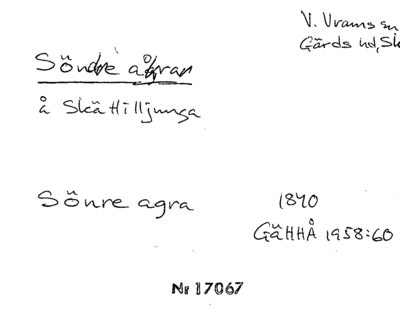 V. Vrams sn
Gärds hd, Sk
Söndre åkrar
å Skättilljunga
Sönre agra
1870
GäHHÅ 1958:60
Nr 17067